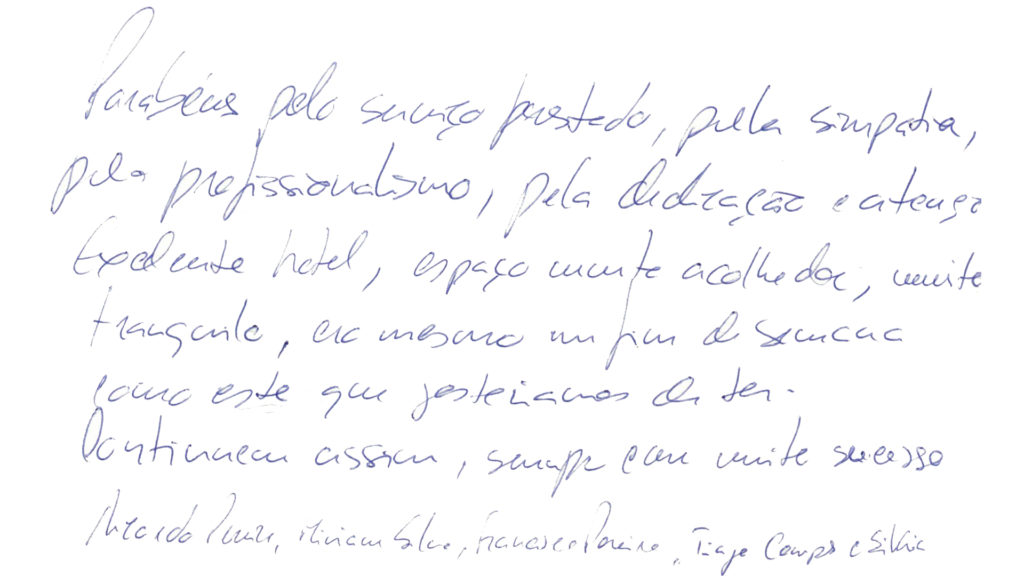 Parabéns pelo serviço prestado, pella simpatia,
pela profissionalismo, pela dedicação e atenção
Excelente hotel, espaço muito acolhedor, muito
tranquilo, era mesmo um fim de semana
como este que gostariamos de ter.
Continuem assim, sempre com muito sucesso
Ricardo, Miriam Silva, Francisco Pereira, Tiago Campos e Silvia